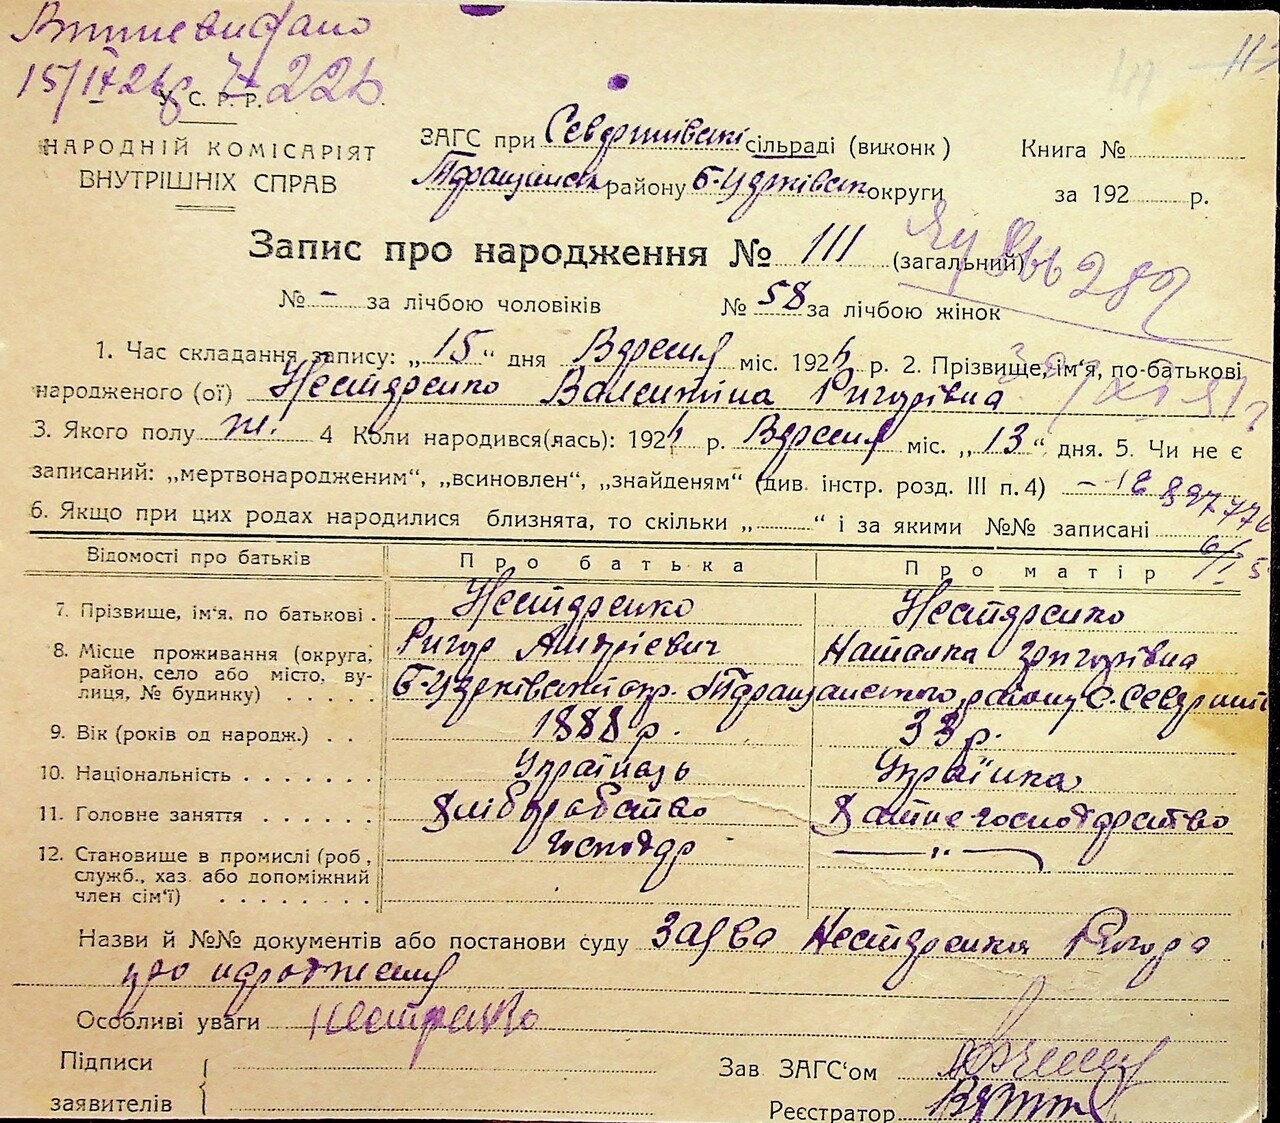 15/IX 26р
У. С. Р. Р.
НАРОДНІЙ КОМІСАРІЯТ
ВНУТРІШНІХ СПРАВ
ЗАГС при сільраді (виконк)
району Б-Церківськ округи
Книга №
за 192 р.
Запис про народження № 111 (загальний)
№ - за лічбою чоловіків № 58 за лічбою жінок
1. Час складання запису: „15“ дня Вересня міс. 1926 р. 2. Прізвище, ім'я, по-батькові
народженого (ої) Нестеренко Валентина Григорівна
3. Якого полу ж. 4 Коли народився(лась): 1926 р. Вересня міс. „13“ дня. 5. Чи не є
записаний: „мертвонародженим“, „всиновлен“, „знайденям“ (див. інстр. розд. III п. 4) –
6. Якщо при цих родах народилися близнята, то скільки „ “ і за якими №№ записані
Відомості про батьків Про батька Про матір
7. Прізвище, ім'я, по батькові . Нестеренко Нестеренко
Ригор Андрієвич Наталка Григорівна
8. Місце проживання (округа, район, село або місто, вулиця, № будинку) Б-Церківський окр. Таращанського району с.
9. Вік (років од народж.) 1888 р. 33 р.
10. Національність Українець Українка
11. Головне заняття Хліборобство Хатнє господарство
12. Становище в промислі (роб., служб., хаз. або допоміжний член сім'ї) господар —„—
Назви й №№ документів або постанови суду Заява Нестеренка Ригора
про народження
Особливі уваги
Підписи
заявителів
Зав ЗАГС'ом
Реєстратор